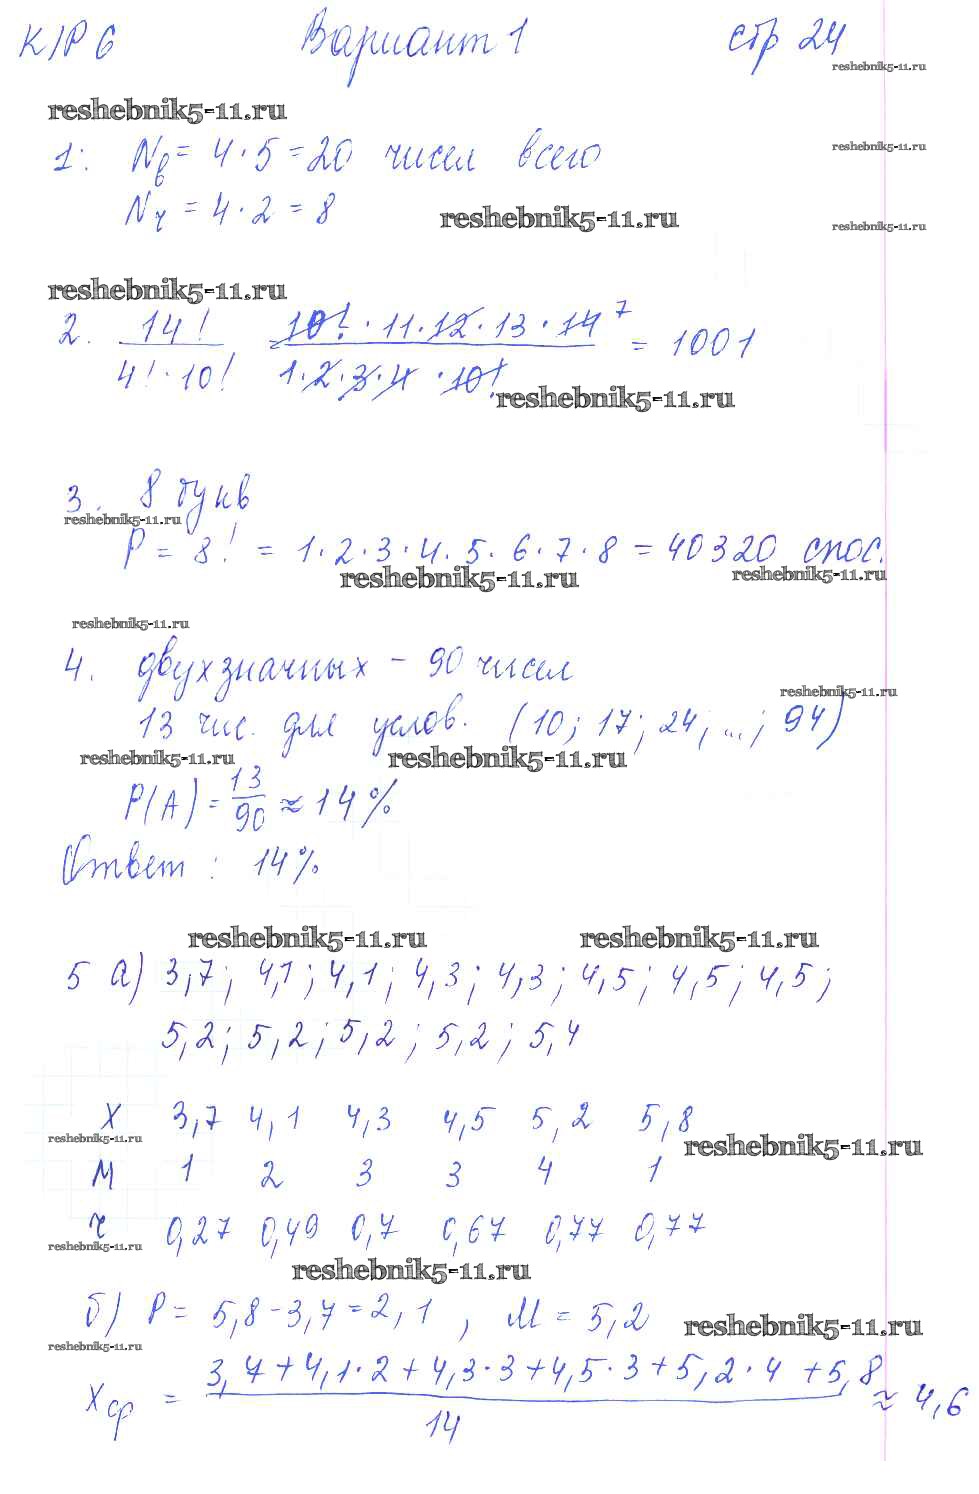 К/Р 6 Вариант 1 стр 24
reshebnik5-11.ru
reshebnik5-11.ru
1: Nв = 4·5 = 20 чисел всего
reshebnik5-11.ru
Nч = 4·2 = 8
reshebnik5-11.ru
reshebnik5-11.ru
reshebnik5-11.ru
2. 14! / 4!·10! = 10!·11·12·13·14 7 / 1·2·3·4·10! = 1001
reshebnik5-11.ru
3. 8 букв
reshebnik5-11.ru
P = 8! = 1·2·3·4·5·6·7·8 = 40320 спос.
reshebnik5-11.ru
reshebnik5-11.ru
reshebnik5-11.ru
4. двухзначных – 90 чисел
reshebnik5-11.ru
13 чис. для услов. (10; 17; 24; ...; 94)
reshebnik5-11.ru
reshebnik5-11.ru
P(A) = 13/90 ≈ 14%
Ответ: 14%
reshebnik5-11.ru
reshebnik5-11.ru
5 а) 3,7; 4,1; 4,1; 4,3; 4,3; 4,5; 4,5; 4,5;
5,2; 5,2; 5,2; 5,2; 5,4
X 3,7 4,1 4,3 4,5 5,2 5,8
reshebnik5-11.ru
reshebnik5-11.ru
M 1 2 3 3 4 1
ч 0,27 0,49 0,7 0,67 0,77 0,77
reshebnik5-11.ru
reshebnik5-11.ru
б) P = 5,8 - 3,7 = 2,1 , M = 5,2
reshebnik5-11.ru
reshebnik5-11.ru
Xср = 3,7 + 4,1·2 + 4,3·3 + 4,5·3 + 5,2·4 + 5,8 / 14 ≈ 4,6